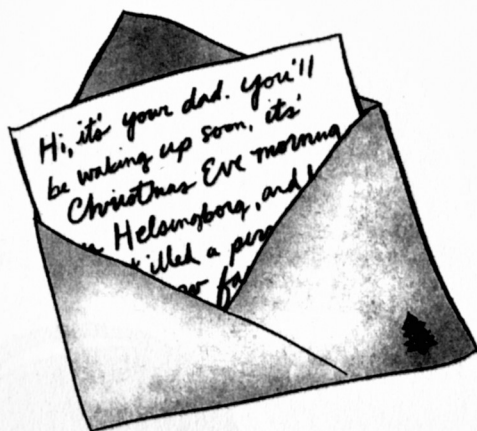 Hi, it's your dad. You'll
be waking up soon, its'
Christmas Eve morning
n Helsingborg, and
illed a pers
ow fa